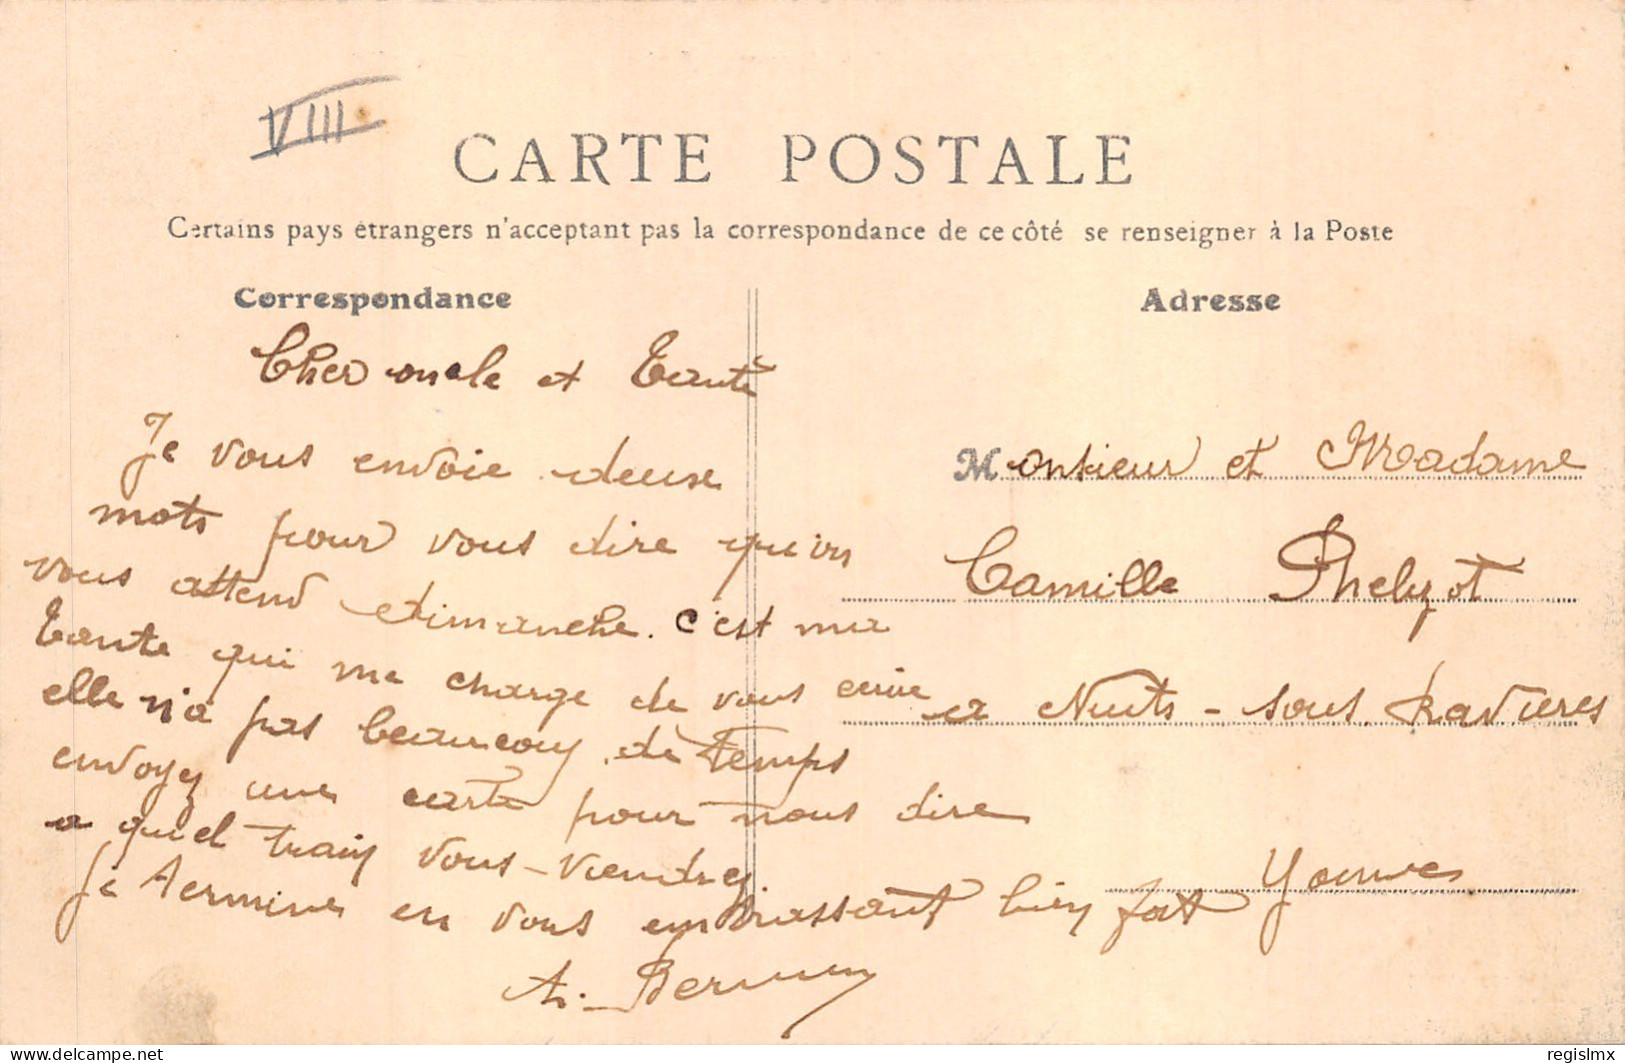 VIII
CARTE POSTALE
Certains pays étrangers n'acceptant pas la correspondance de ce côté se renseigner à la Poste
Correspondance
Cher oncle et Tante
Je vous envoie deuse
mots pour vous dire qu'on
vous attend dimanche. c'est ma
Tante qui me charge de vous ecrire
elle n'a pas beaucoup de Temps
envoyez une carte pour nous dire
a quel train vous-viendrez
Je termine en vous embrassant bien fort
A.
Adresse
Monsieur et Madame
Camille Phelizot
a Nuits-sous Ravieres
Yonnes
delcampe.net
regislmx